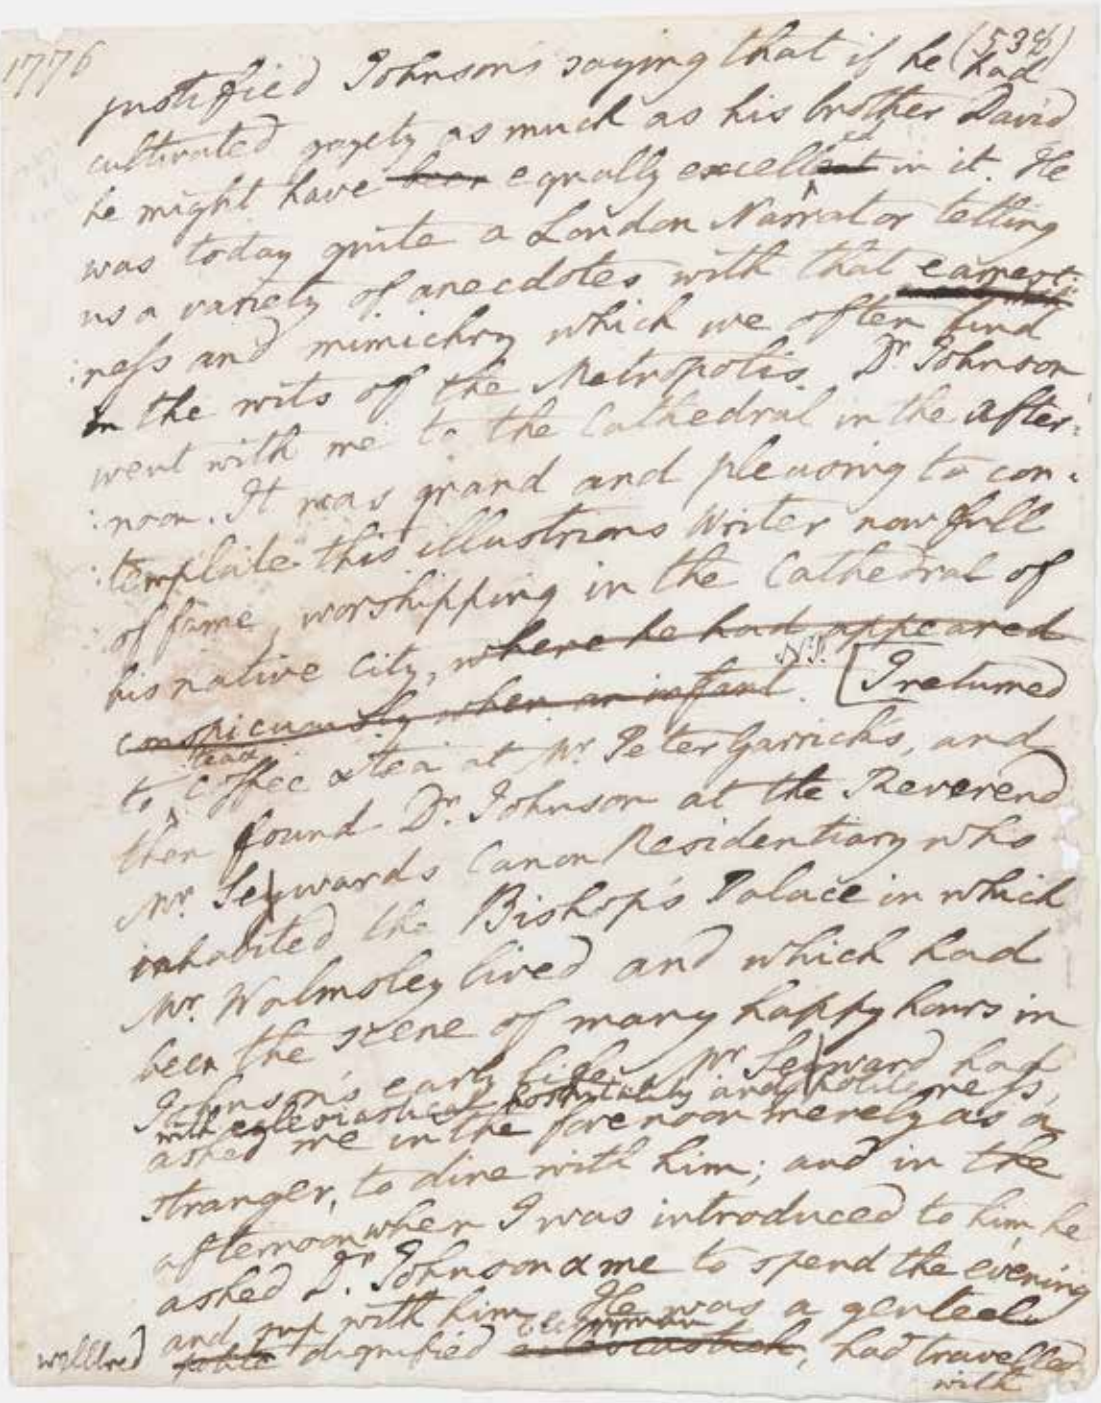 1776
(538)
justified Johnsons saying that if he had
cultivated gayety as much as his brother David
he might have been equally excellent ed in it. He
was today quite a London Narrator telling
us a variety of anecdotes with that earnest:
:ness and mimickry which we often find
in the wits of the Metropolis. Dr. Johnson
went with me to the Cathedral in the after:
:noon. It was grand and pleasing to con:
:template this illustrious Writer now full
of fame, worshipping in the Cathedral of
his native City, where he had appeared
conspicuously when an infant. N.P. [I returned
to coffee & tea at Mr. Peter Garrick's, and
then found Dr. Johnson at the Reverend
Mr. Sewards Canon Residentiary who
inhabited the Bishop's Palace in which
Mr. Walmsley lived and which had
been the scene of many happy hours in
Johnson's early life. Mr. Seward had
with eclesiastical hospitality and politeness,
asked me in the forenoon merely as a
stranger, to dine with him; and in the
afternoon when I was introduced to him, he
asked Dr. Johnson & me to spend the evening
and sup with him. He was a genteel
wellbred polite dignified clergyman, had travelled
with